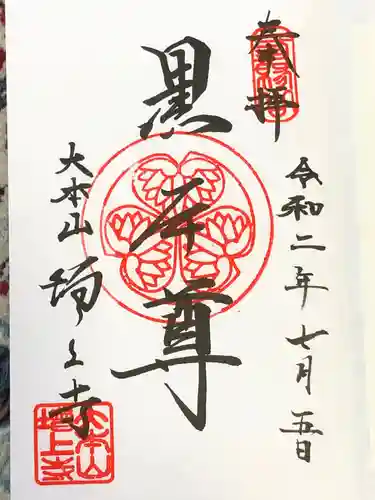 奉拝
令和二年七月五日
黒本尊
大本山 増上寺
大本山
増上寺